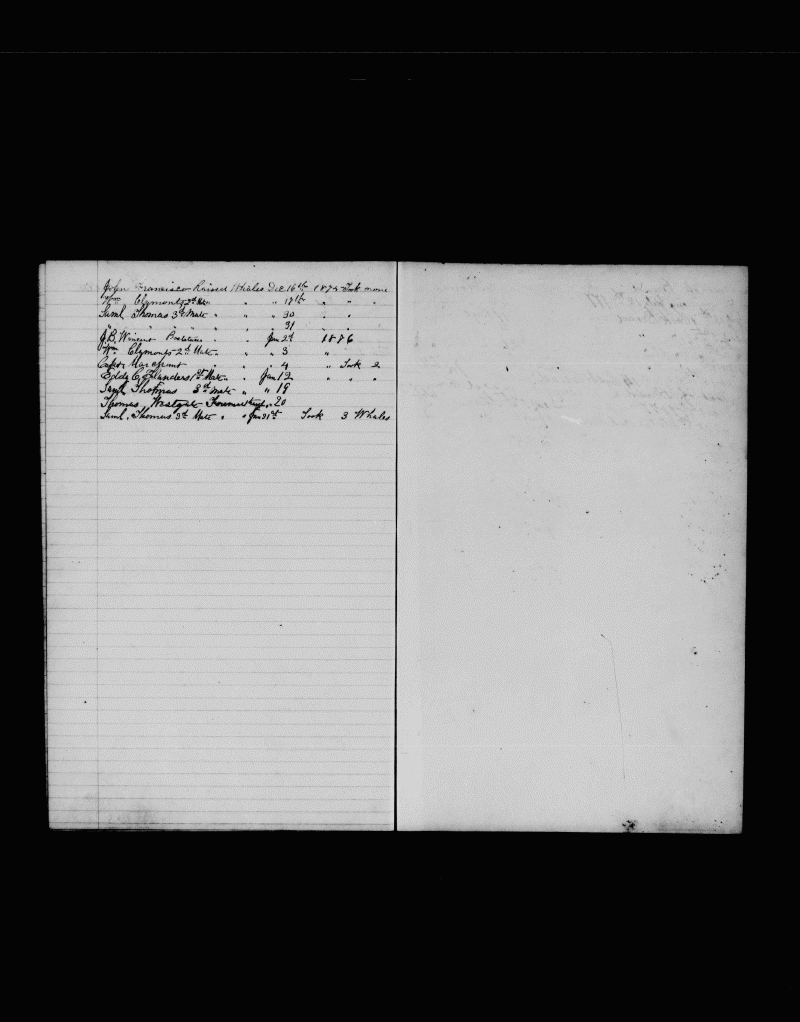 John Francisco Raised Whales Dec 16th 1875 Took none
Wm Clymonts 2d Mate " " 17th " " "
Saml Thomas 3d Mate " " 30 " "
" " " " " " 31 " "
J. B. Vincent " " Jan 2d 1876
Wm Clymonts 2d Mate " " 3 "
Capt " " 4 " Took 2
Eddy C. Flanders 1st Mate " Jan 12 " " "
Saml Thomas 3d Mate " " 19
Thomas Westgate " 20
Saml. Thomas 3d Mate " " Jan 21st Took 3 Whales